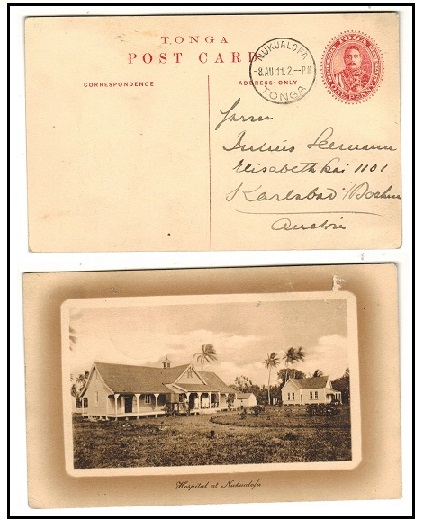 TONGA
POST CARD
CORRESPONDENCE
ADDRESS ONLY
NUKUALOFA
-8.AU.11.2-PM
TONGA
TONGA
ONE PENNY
Elisabethkai 1101
Karlsbad
Austria
Hospital at Nukualofa